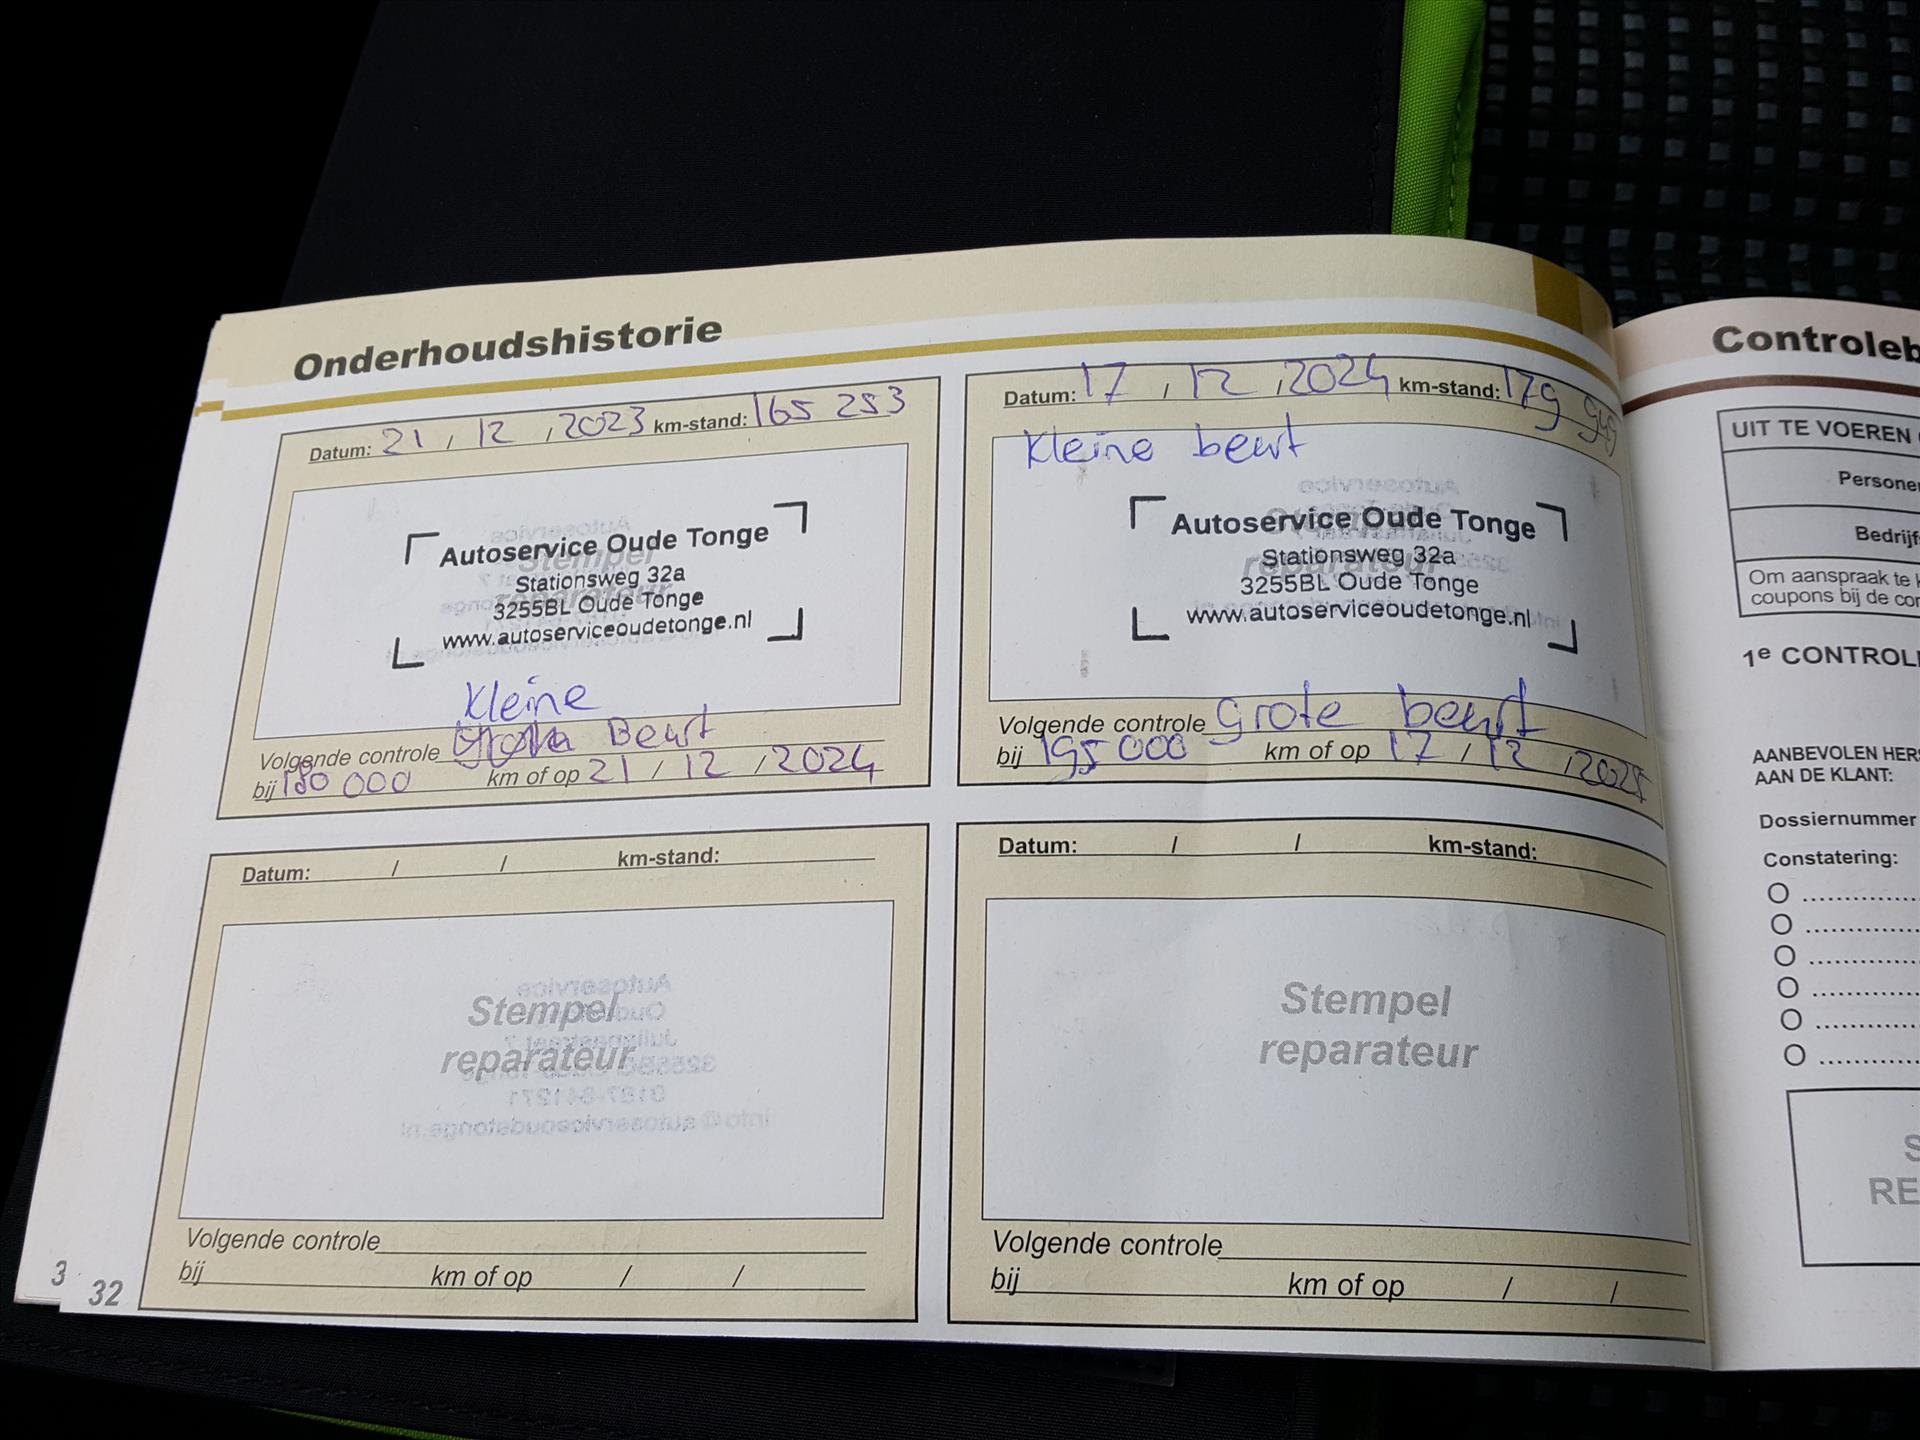 Onderhoudshistorie
Datum: 21 / 12 / 2023 km-stand: 165 253
Autoservice Oude Tonge
Stationsweg 32a
3255BL Oude Tonge
www.autoserviceoudetonge.nl
Kleine
Volgende controle Beurt
bij 180 000 km of op 21 / 12 / 2024
Datum: 17 / 12 / 2024 km-stand: 179 949
Kleine beurt
Autoservice Oude Tonge
Stationsweg 32a
3255BL Oude Tonge
www.autoserviceoudetonge.nl
Volgende controle grote beurt
bij 195 000 km of op 17 / 12 / 2025
Datum: / / km-stand:
Stempel
reparateur
Volgende controle
bij km of op / /
Datum: / / km-stand:
Stempel
reparateur
Volgende controle
bij km of op / /
3
32
Controleb
UIT TE VOEREN
Persone
Bedrijf
Om aanspraak te
coupons bij de con
1e CONTROL
AANBEVOLEN HER
AAN DE KLANT:
Dossiernummer
Constatering:
S
RE